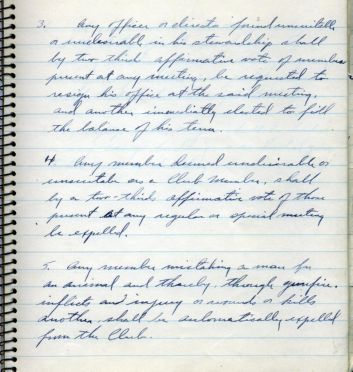 3. Any officer or director found unsuitable
or undesirable in his stewardship shall
by two third affirmative vote of members
present at any meeting, be requested to
resign his office at the said meeting,
and another immediatly elected to fill
the balance of his term.
4 Any member deemed undesirable or
unsuitable as a Club Member, shall
by a two-thirds affirmative vote of those
present at any regular or special meeting
be expelled.
5. Any member mistaking a man for
an animal and thereby, through gunfire,
inflicts and injury or wounds or kills
another, shall be automatically expelled
from the Club.